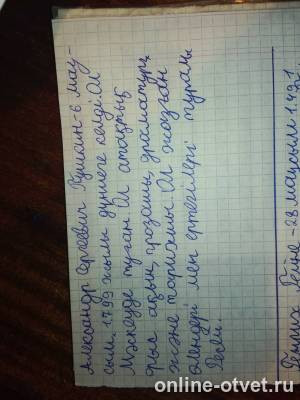 Александр Сергеевич Пушкин - 6 мау-
сым 1799 жылы дүниеге келді. Ол
Мәскеуде туған. Ол атақты
орыс ақын, прозашы, драматург,
және тарихшы. Ол жазған
өлеңдері мен ертегілері туралы
Ресей.
Генрих Гейне - 28 маусым 1491
online-otvet.ru